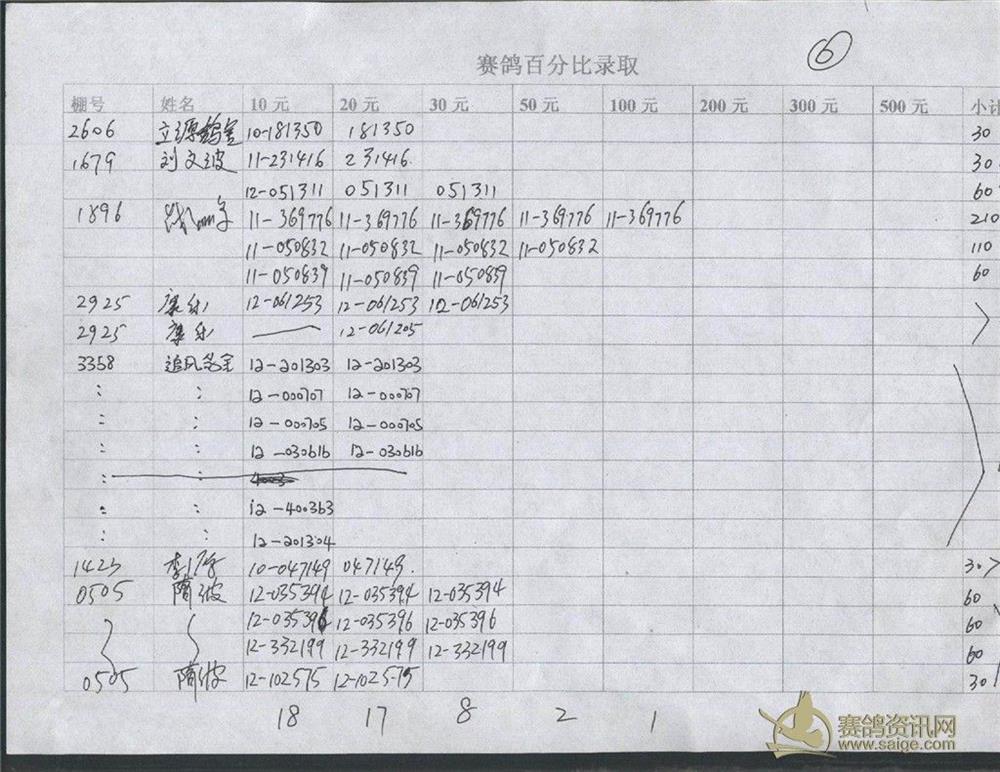 6
赛鸽百分比录取
棚号 姓名 10元 20元 30元 50元 100元 200元 300元 500元 小计
2606 立源鸽舍 10-181350 181350 30
1679 刘文波 11-231416 231416. 30
12-051311 051311 051311 60
1896 11-369776 11-369776 11-369776 11-369776 11-369776 210
11-050832 11-050832 11-050832 11-050832 110
11-050839 11-050839 11-050839 60
2925 康乐 12-061253 12-061253 12-061253
2925 康乐 — 12-061205
3358 追风 12-201303 12-201303
: : 12-000707 12-000707
: : 12-000705 12-000705
: : 12-030616 12-030616
: :
: : 12-400363
: : 12-201304
1423 10-047149 047149. 30
0505 隋波 12-035394 12-035394 12-035394 60
12-035396 12-035396 12-035396 60
12-332199 12-332199 12-332199 60
0505 隋波 12-102575 12-102575 30
18 17 8 2 1
赛鸽资讯网
www.saige.com